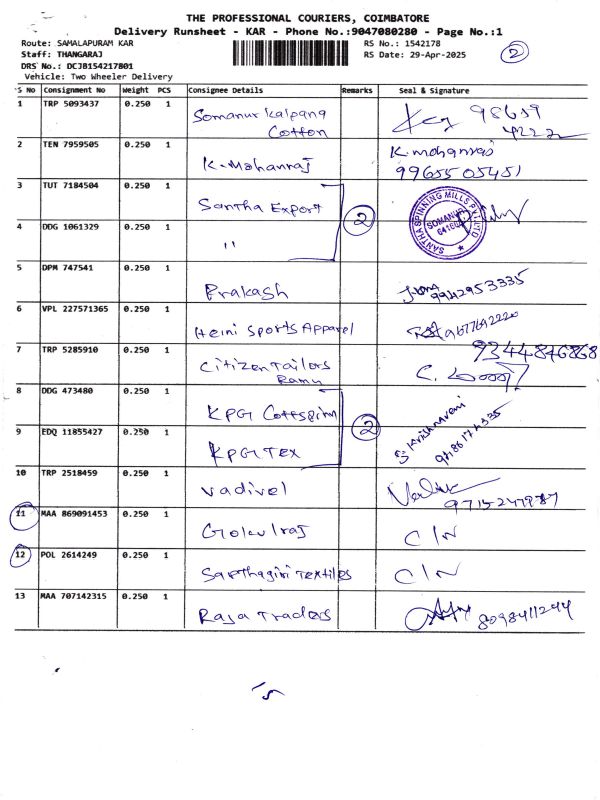 THE PROFESSIONAL COURIERS, COIMBATORE
Delivery Runsheet - KAR - Phone No.:9047080280 - Page No.:1
Route: SAMALAPURAM KAR
RS No.: 1542178
Staff: THANGARAJ
RS Date: 29-Apr-2025
2
DRS No.: DCJB154217801
Vehicle: Two Wheeler Delivery
S No Consignment No Weight PCS Consignee Details Remarks Seal & Signature
1 TRP 5093437 0.250 1 Somanur Kalpana
Cotton
98659
2 TEN 7959505 0.250 1 K-Mohanraj K.mohanraj
9965505451
3 TUT 7184504 0.250 1 Santha Export 2 SANTHA SPINNING MILLS PVT LTD
SOMANUR
4 DDG 1061329 0.250 1 "
5 DPM 747541 0.250 1 Prakash 9942953335
6 VPL 227571365 0.250 1 Heini Sports Apparel 9677692220
7 TRP 5285910 0.250 1 Citizen Tailors
Ramu
9344846868
8 DDG 473480 0.250 1 KPG Cottspinn 2 S Krishnaveni
9 EDQ 11855427 0.250 1 KPG Tex
10 TRP 2518459 0.250 1 Vadivel
11 MAA 869091453 0.250 1 Gokulraj C/N
12 POL 2614249 0.250 1 Sapthagiri Textiles C/N
13 MAA 707142315 0.250 1 Raja Traders 8098411244